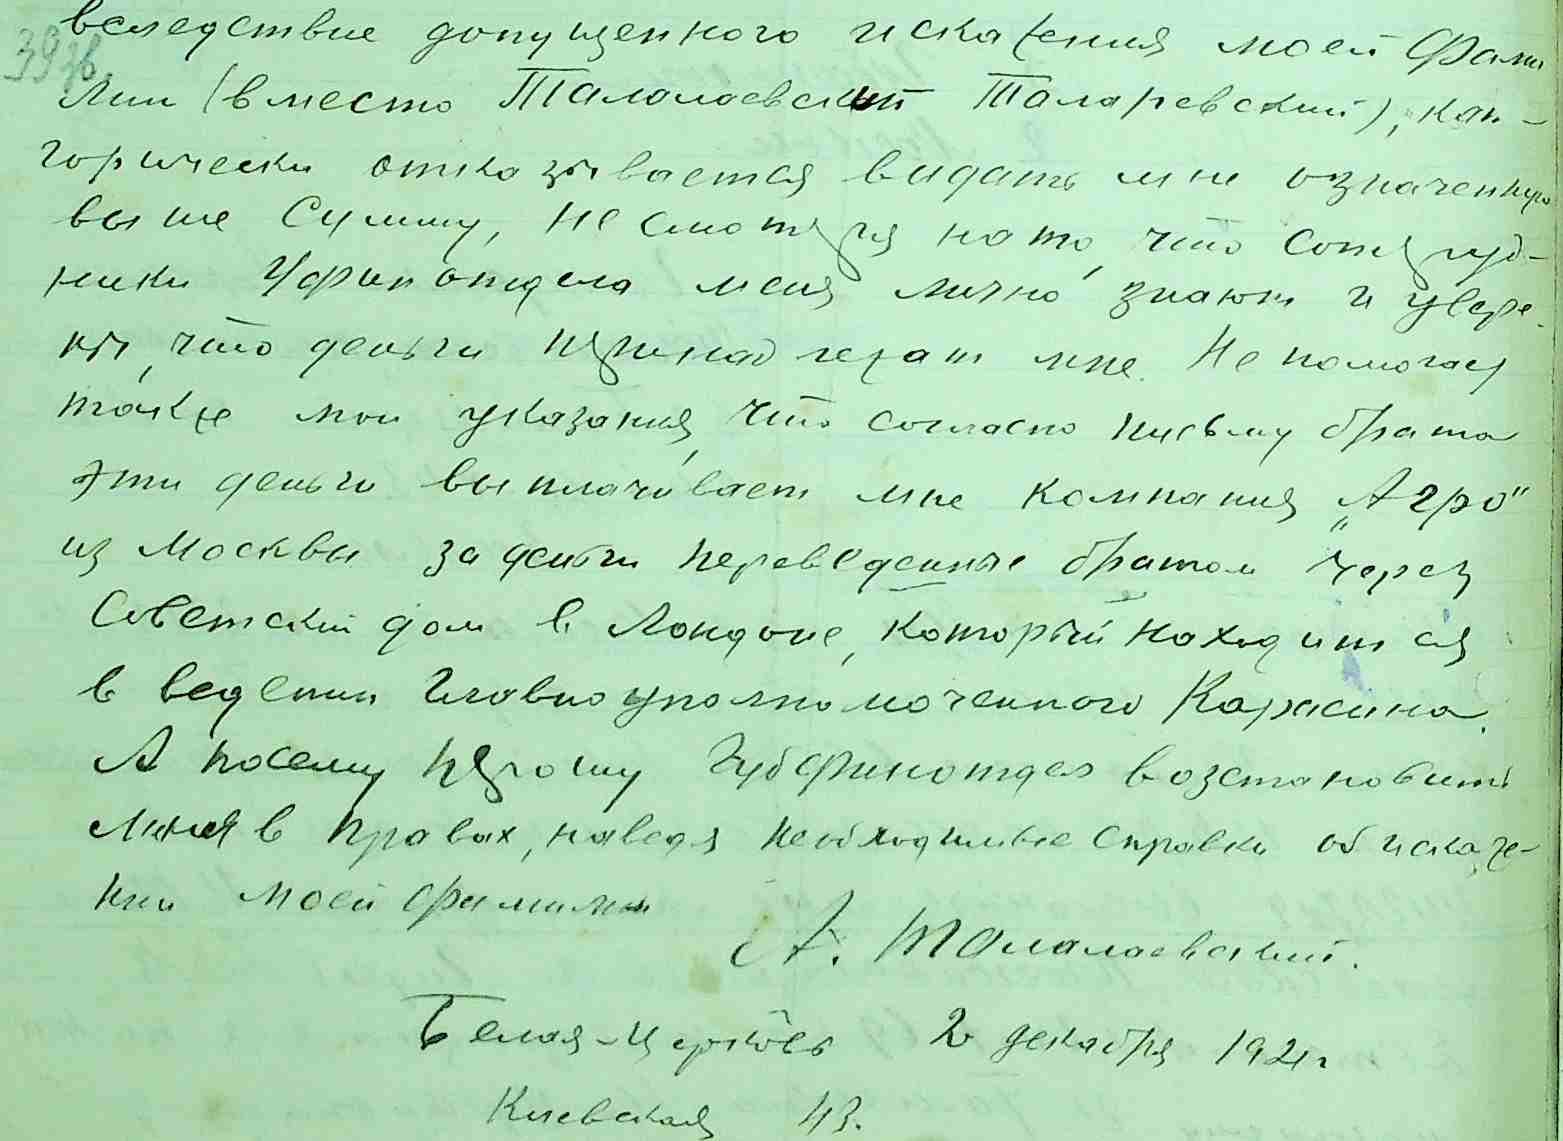 39 зв.
вследствие допущенного искажения моей Фами
лии (вместо Талалаевский Таларевский), кат-
горически отказывается выдать мне означенную
выше Сумму, не смотря на то, что сотруд-
ники Уфинотдела меня лично знают и увере-
ны, что деньги принадлежат мне. Не помогает
также мои указания, что согласно письму брата
эти деньги выплачивает мне компания „Агро"
из Москвы за деньги переведенные братом через
Советский дом в Лондоне, который находится
в ведении Главноуполномоченного Карасина.
А посему прошу Губфинотдел возстановить
меня в правах, наведя необходимые справки об искаже-
нии моей фамилии
А. Талалаевский.
Белая-Церковь 2 декабря 192 г
Киевская 43.